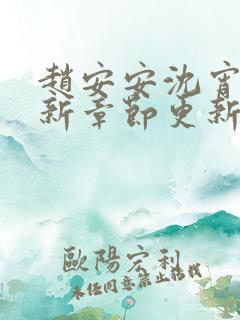 趙安安沈宵
新章節更新
歐陽宏利
未经同意禁止搭载